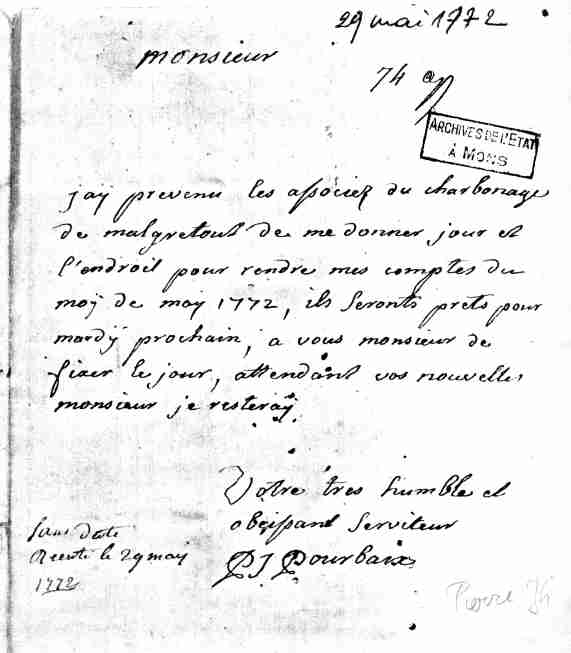 29 mai 1772
monsieur
74
ARCHIVES DE L'ETAT
À MONS
jay prevenu les associez du charbonage
de malgretout de me donner jour et
l'endroit pour rendre mes comptes du
moÿ de may 1772, ils seronts prets pour
mardÿ prochain, a vous monsieur de
fixer le jour, attendant vos nouvelles
monsieur je resteraÿ
Votre tres humble et
obeissant serviteur
PJ Pourbaix
sans date
Recente le 29 may
1772
Pierre